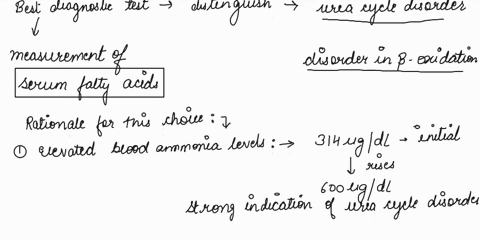 Best diagnostic test → distinguish → urea cycle disorder
measurement of
disorder in β-oxidation
serum fatty acids
Rationale for this choice: ↴
① elevated blood ammonia levels: → 314 ug/dL → initial
↓ rises
600 ug/dL
strong indication of urea cycle disorder